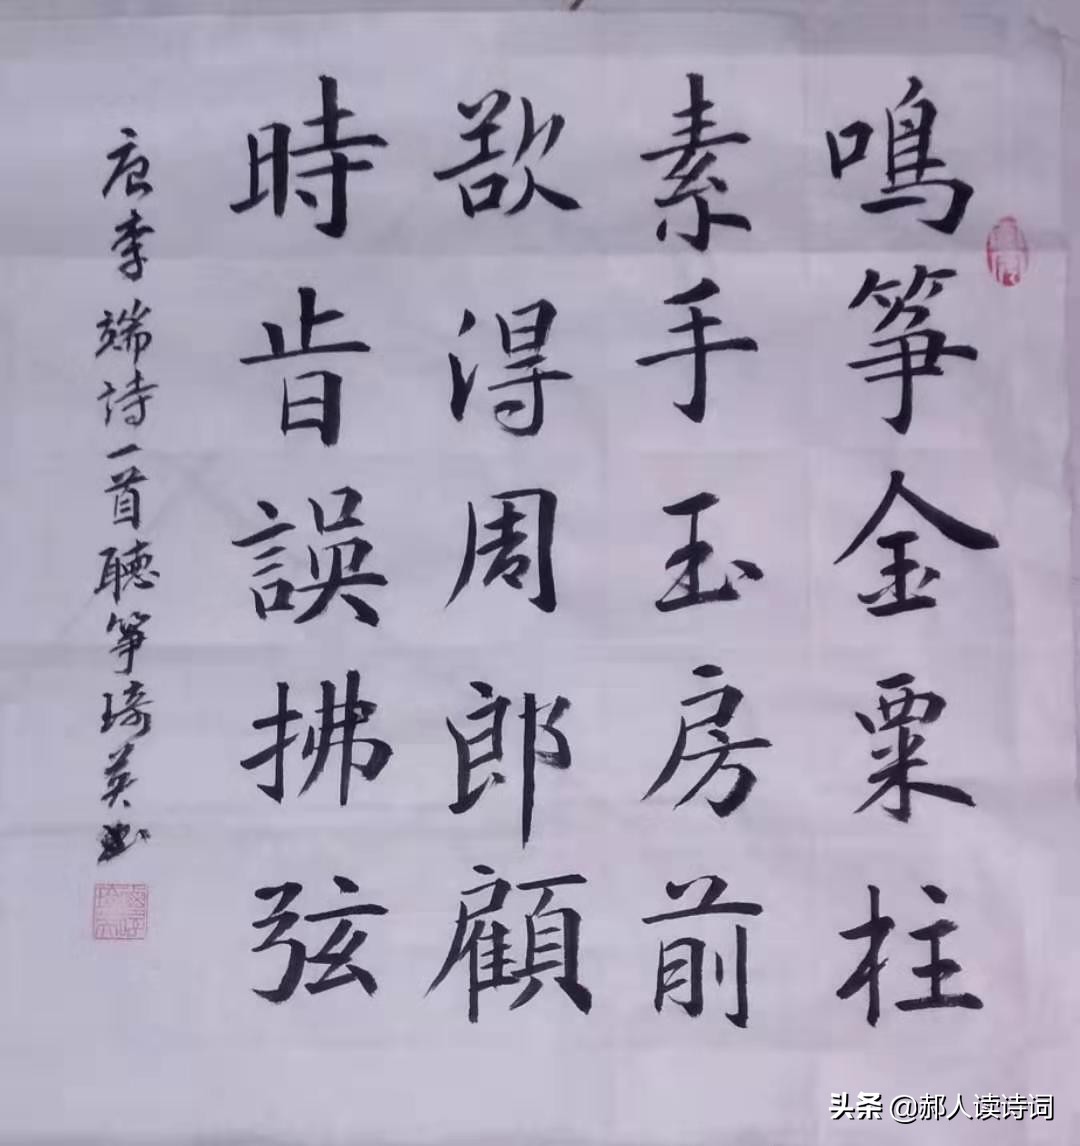 鳴筝金粟柱
素手玉房前
欲得周郎顧
時旹誤拂弦
唐李端詩一首聴筝琦英书
头条 @郝人读诗词